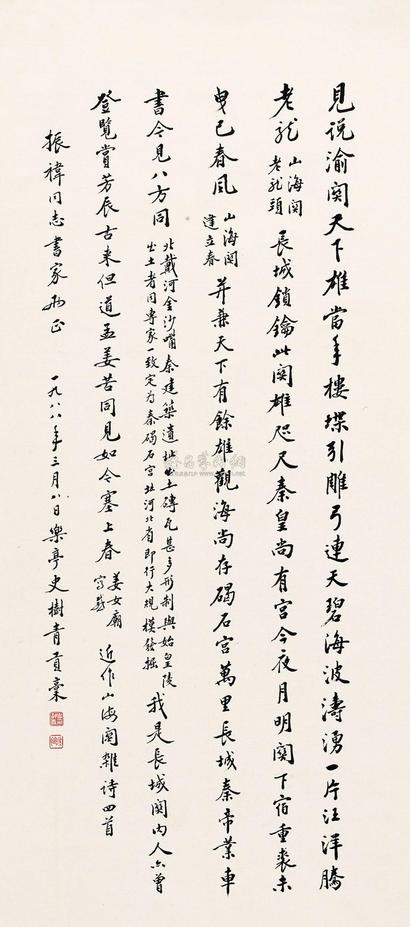 見説渝関天下雄當年樓堞引雕弓連天碧海波濤湧一片汪洋騰
老龍
山海関
老龍頭
長城鎖鑰此関雄咫尺秦皇尚有宮今夜月明関下宿重裘未
曳已春風
山海関
立春
并兼天下有餘雄觀海尚存碣石宮萬里長城秦帝業車
書今見八方同
北戴河金沙嘴秦建築遺址出土磚瓦甚多形制與始皇陵
出土者同專家一致定为秦碣石宮址河北省即行大規模發掘
我是長城関内人亦曾
登覽賞芳辰古来但道孟姜苦同見如今塞上春
姜女廟
近作山海関雜詩四首
振禕同志書家両正
一九八八年三月八日樂亭史樹青貢稾